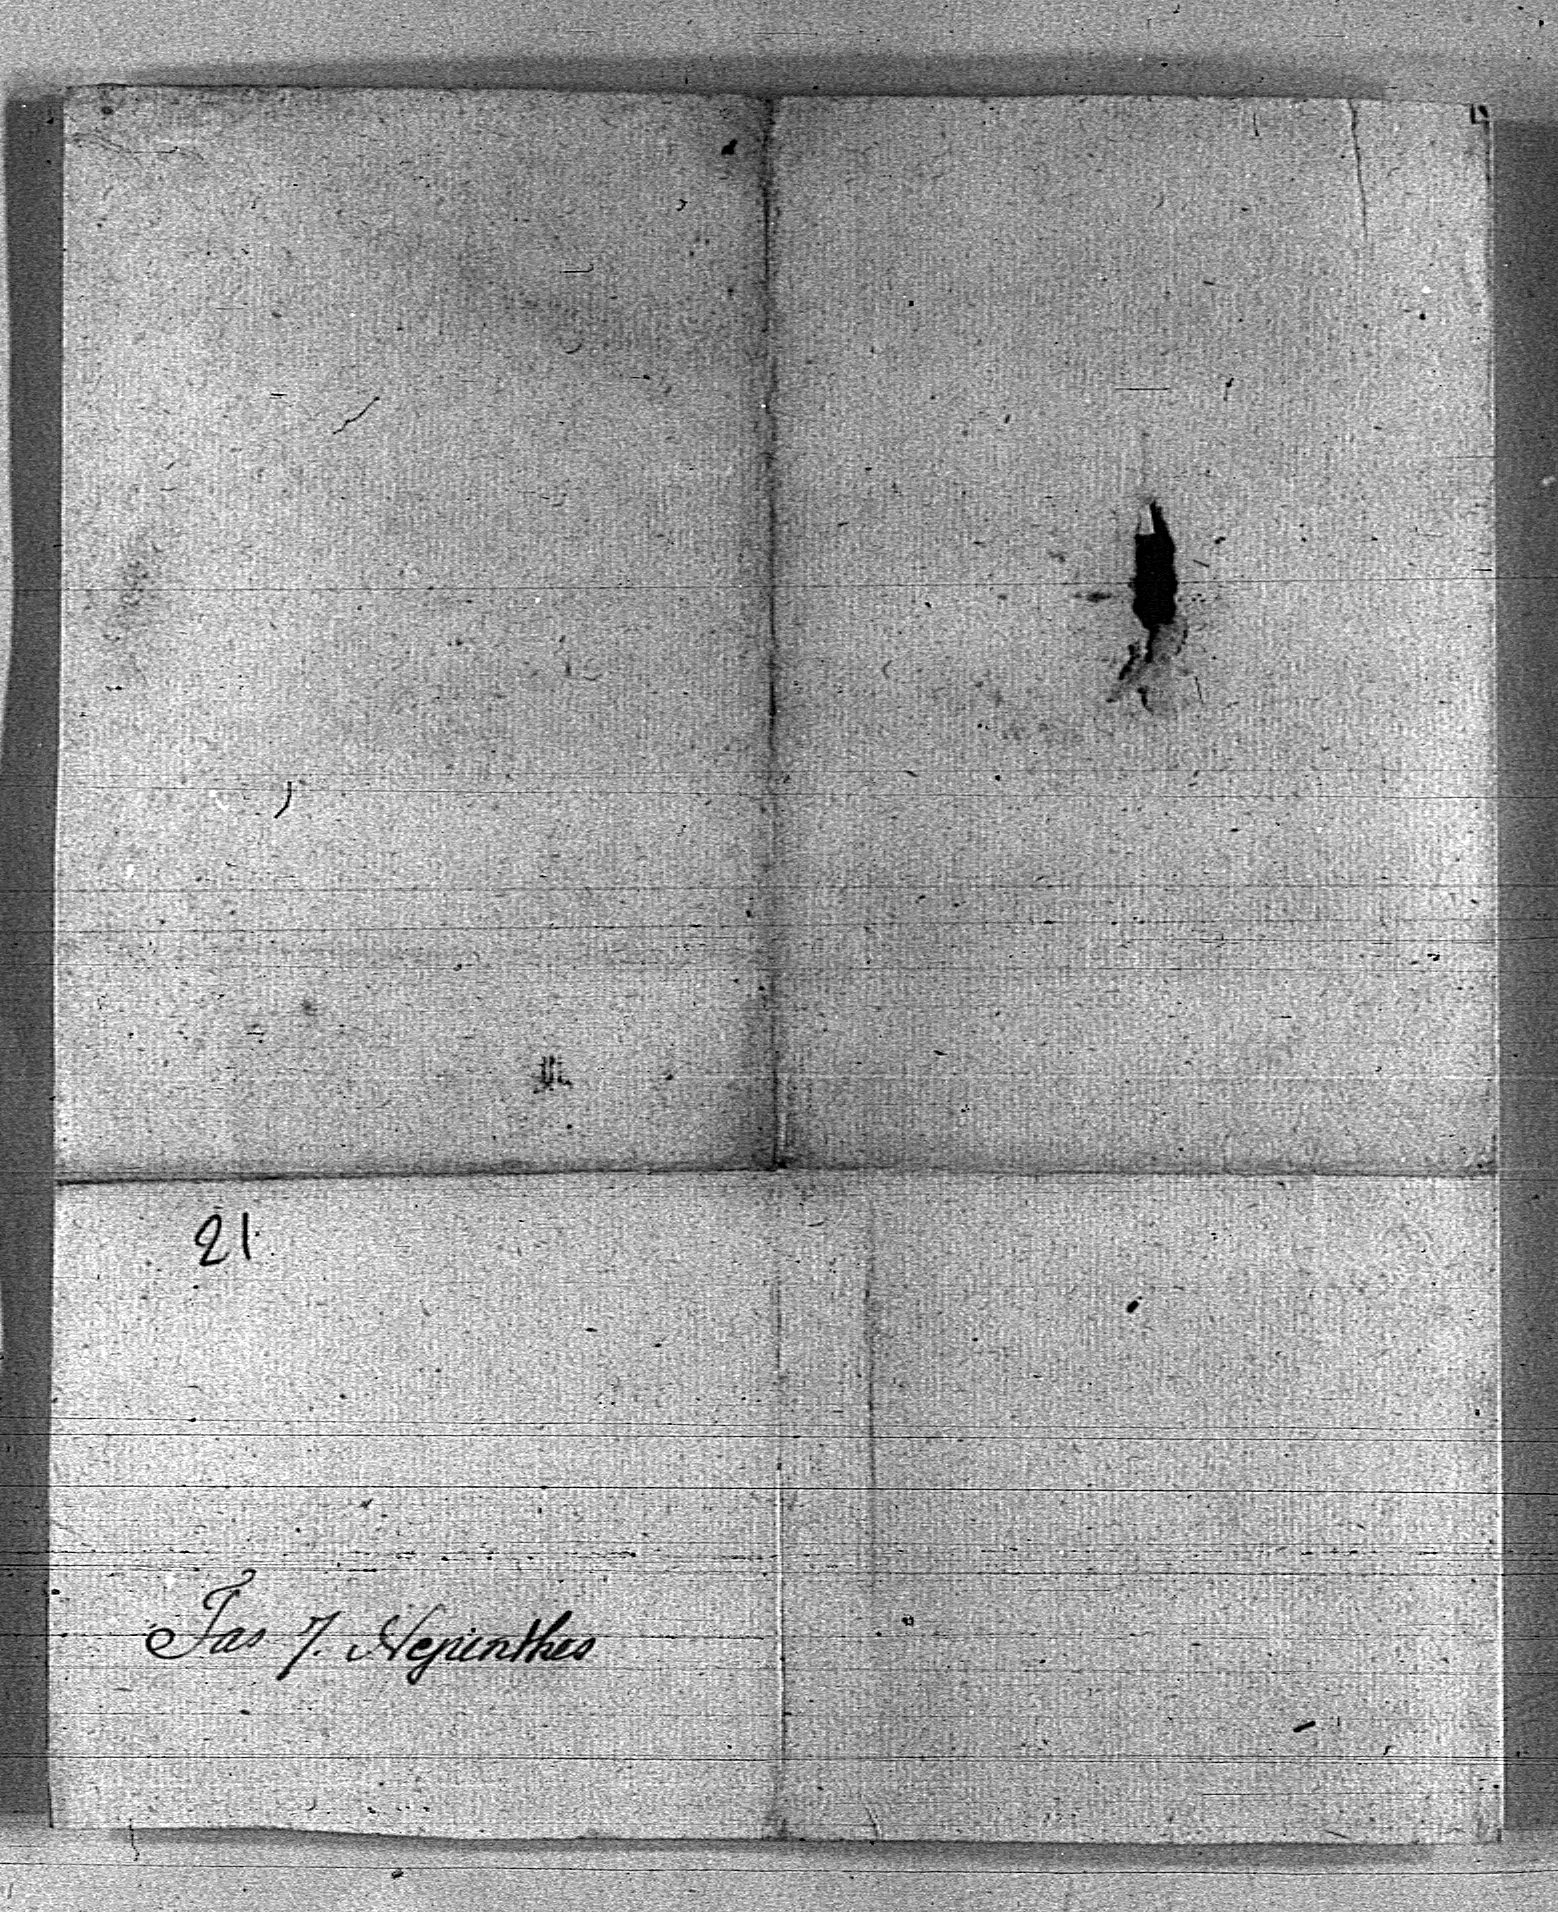 21
Jas 7. Nepenthes